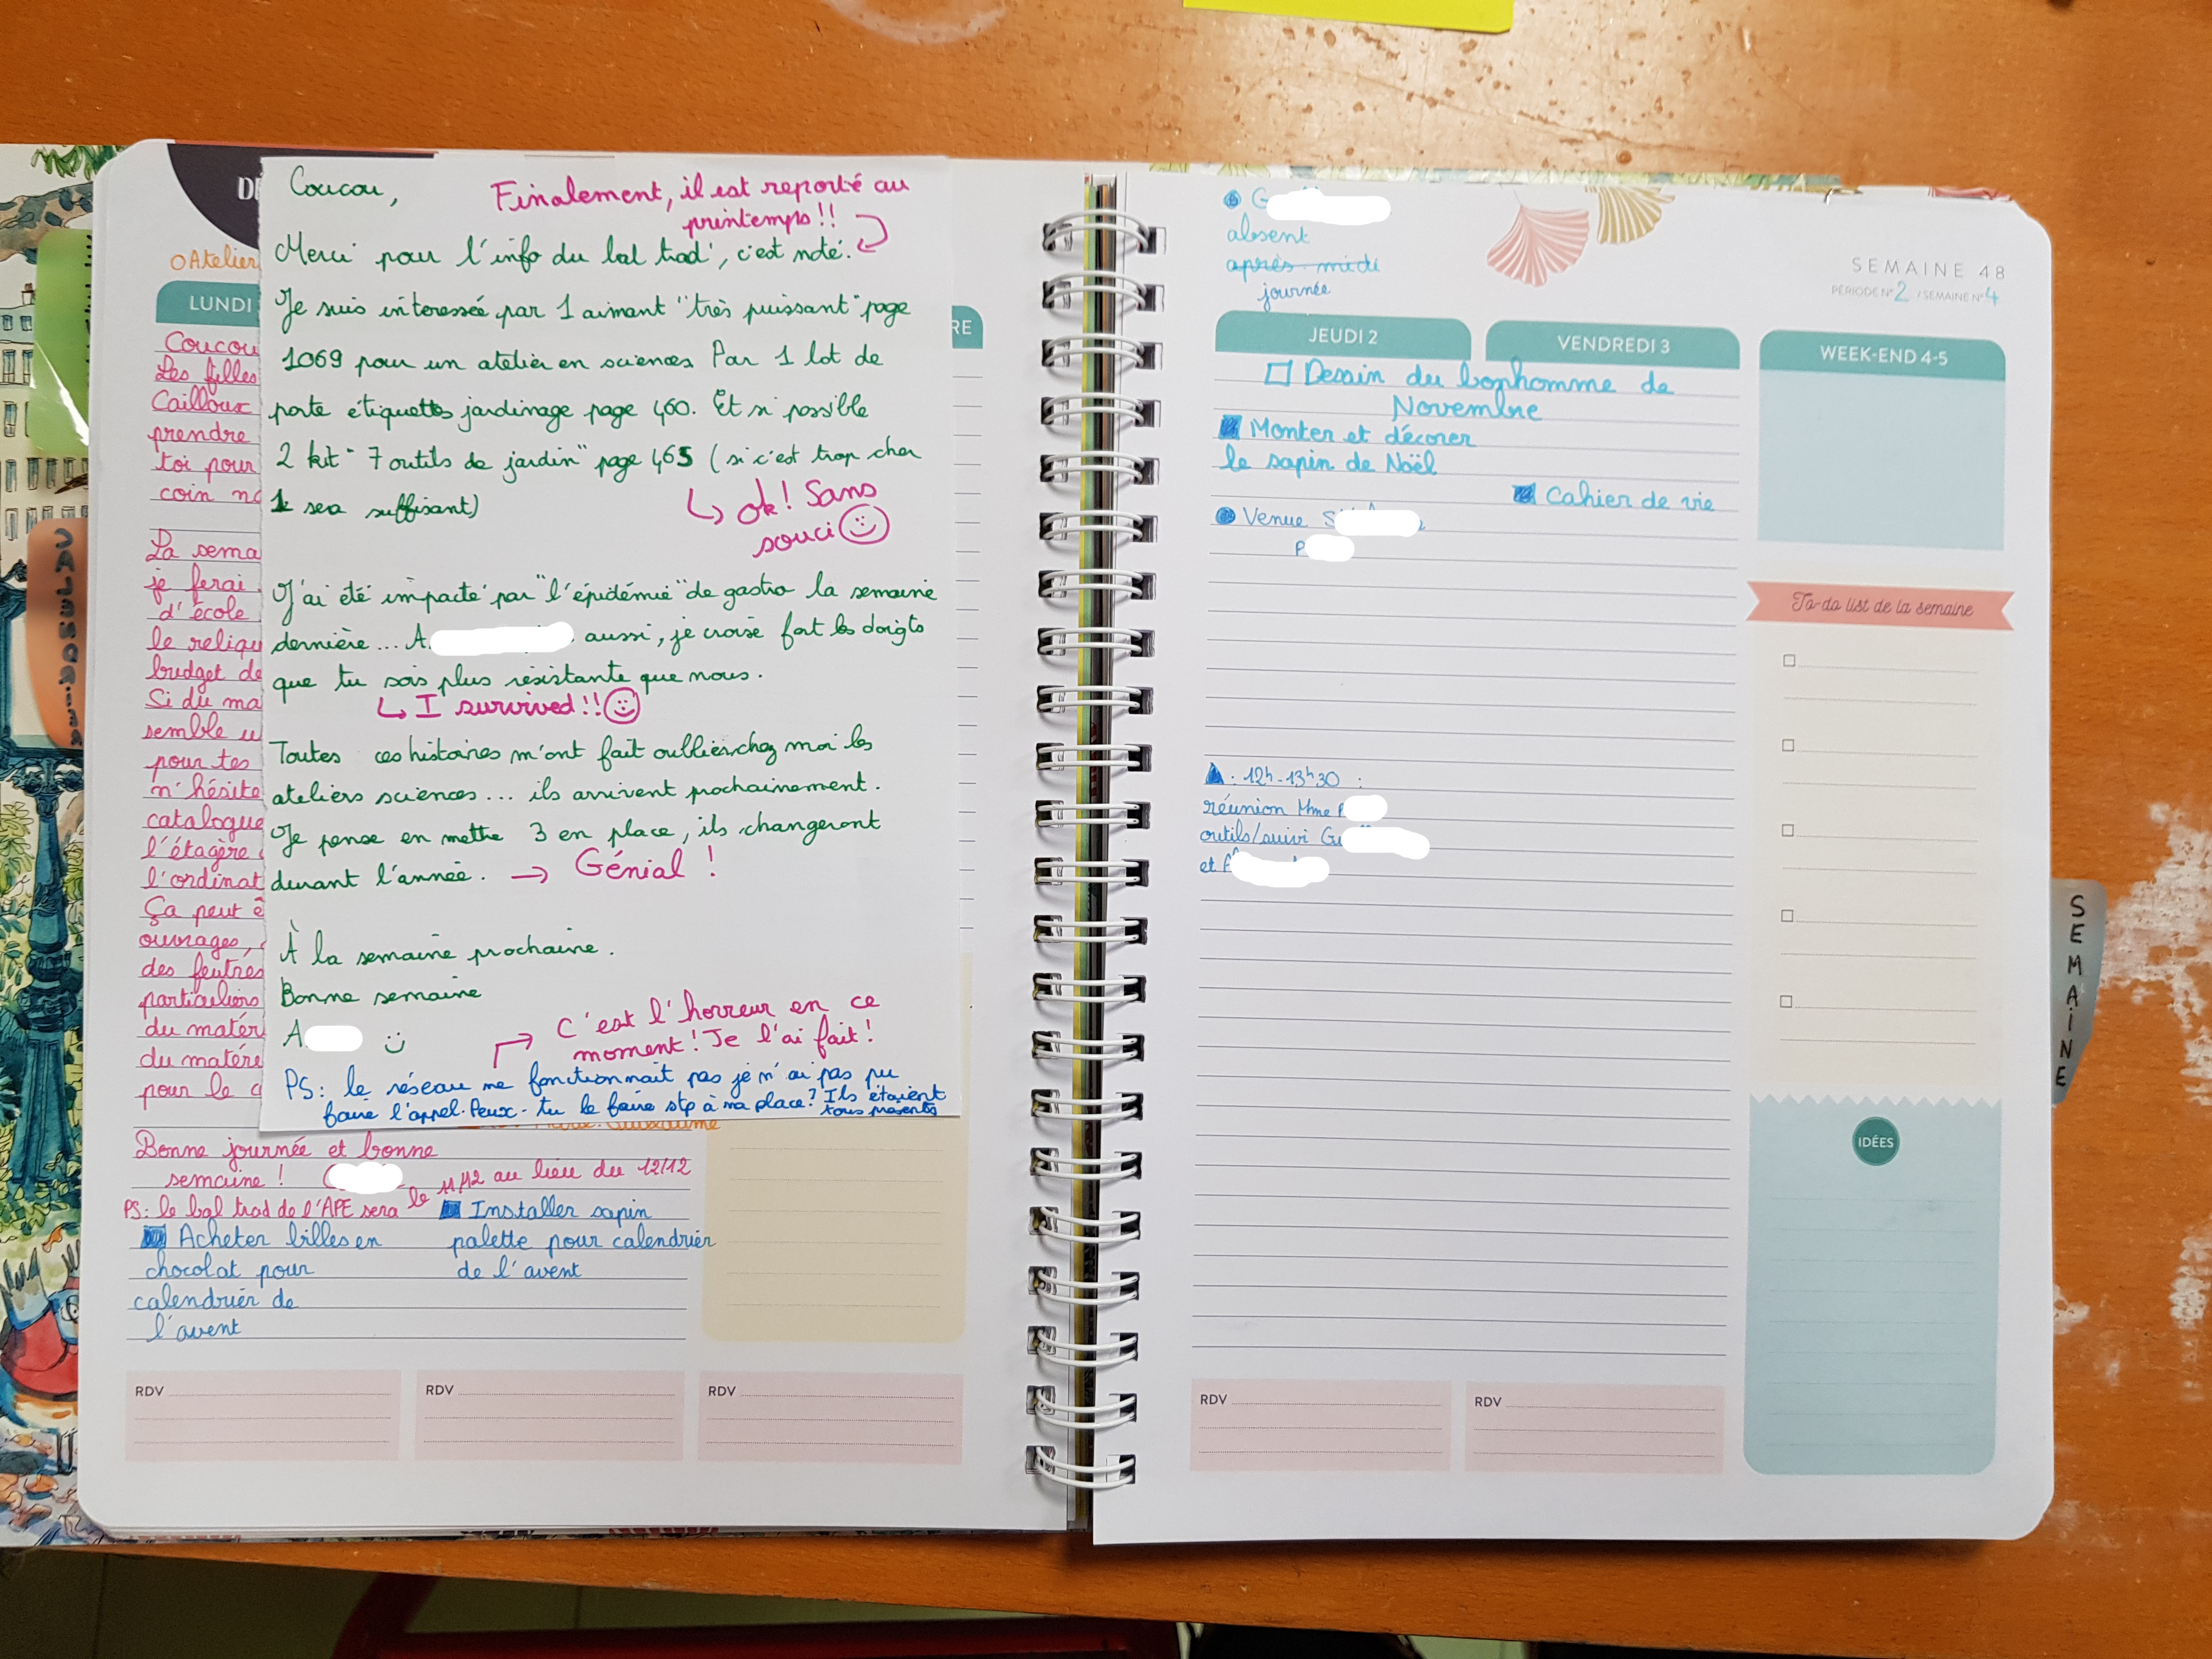 Coucou,
Finalement, il est reporté au
printemps!!
Merci pour l'info du bal trad', c'est noté.
Je suis interessée par 1 aimant "très puissant" page
1069 pour un atelier en sciences. Par 1 lot de
porte étiquettes jardinage page 460. Et si possible
2 kit "7 outils de jardin" page 465 (si c'est trop cher
1 sea suffisant)
↳ ok! Sans
souci ☺
J'ai été impacté par "l'épidémie" de gastro la semaine
dernière... A aussi, je croise fort les doigts
que tu sois plus résistante que nous.
↳ I survived!! ☺
Toutes ces histoires m'ont fait oublier chez moi les
ateliers sciences... ils arrivent prochainement.
Je pense en mettre 3 en place, ils changeront
durant l'année. → Génial !
À la semaine prochaine.
Bonne semaine
A
C'est l'horreur en ce
moment! Je l'ai fait!
PS: le réseau ne fonctionnait pas je n'ai pas pu
faire l'appel. Peux-tu le faire stp à ma place? Ils étaient
tous présents
OAtelier
LUNDI
RE
Coucou
Les filles
Cailloux
prendre
toi pour
coin
La sema
je ferai
d'école
le reliqu
budget de
Si du ma
semble u
pour tes
n'hésite
catalogue
l'étagère
l'ordinat
Ça peut ê
ouvrages,
des feutres
particuliers
du matér
du matérie
pour le
Bonne journée et bonne
semaine !
PS: le bal trad de l'APE sera le 11/12 au lieu du 12/12
Acheter billes en
chocolat pour
calendrier de
l'avent
Installer sapin
palette pour calendrier
de l'avent
RDV
RDV
RDV
G
absent
après-midi
journée
SEMAINE 48
PÉRIODE N° 2 / SEMAINE N° 4
JEUDI 2
VENDREDI 3
WEEK-END 4-5
Dessin du bonhomme de
Novembre
Monter et décorer
le sapin de Noël
Cahier de vie
Venue S
P
: 12h-13h30 :
réunion Mme P
outils/suivi Gu
et
To-do list de la semaine
IDÉES
RDV
RDV
SEMAINE